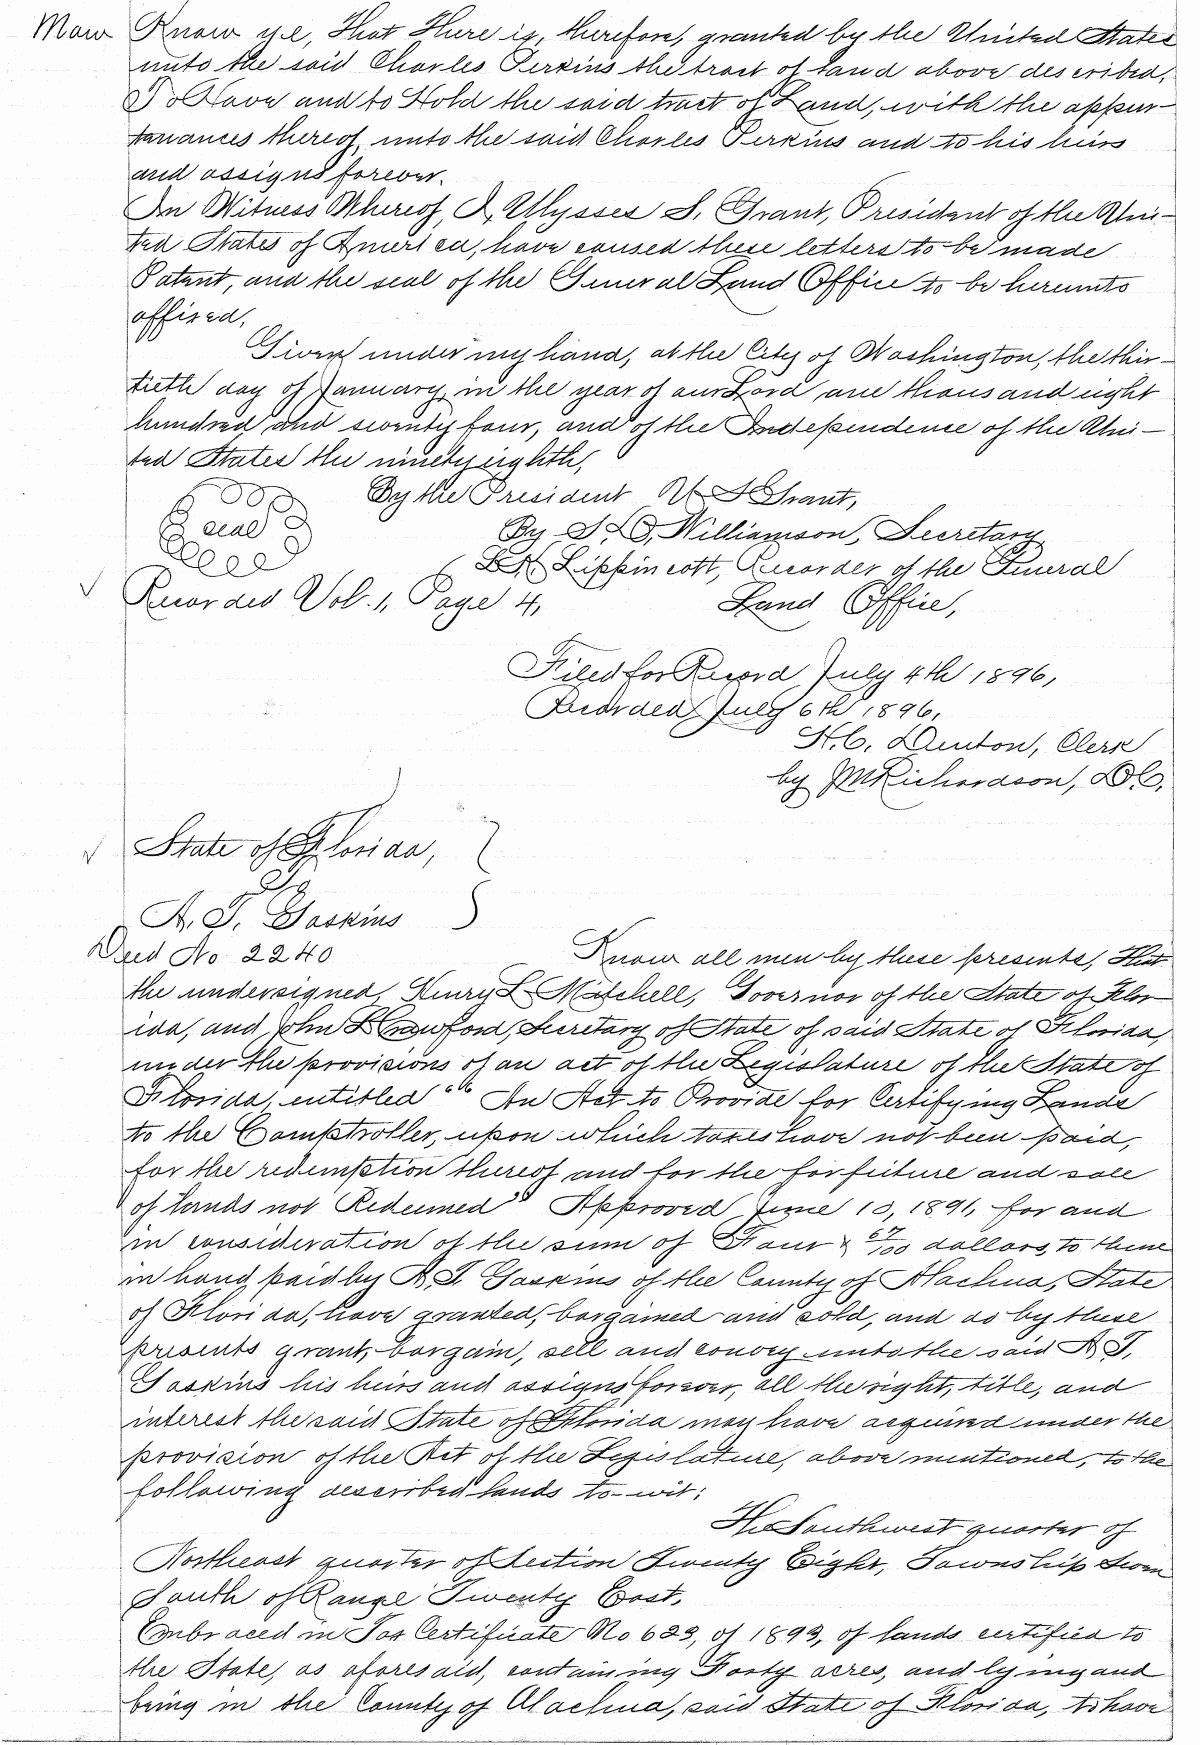 Now Know ye, That There is, therefore, granted by the United States
unto the said Charles Perkins the tract of land above described,
To Have and to Hold the said tract of Land, with the appur-
tenances thereof, unto the said Charles Perkins and to his heirs
and assigns forever.
In Witness Whereof, I, Ulysses S. Grant, President of the Uni-
ted States of America, have caused these letters to be made
Patent, and the seal of the General Land Office to be hereunto
affixed,
Given under my hand, at the City of Washington, the thir-
tieth day of January, in the year of our Lord one thousand eight
hundred and seventy four, and of the Independence of the Uni-
ted States the ninety eighth,
By the President U S Grant,
seal
By S. D. Williamson, Secretary
Lippincott, Recorder of the General
Recorded Vol. 1, Page 4, Land Office,
Filed for Record July 4th 1896,
Recorded July 6th 1896,
H. C. Denton, Clerk
by J M Richardson, D. C.
State of Florida,
To
A. T. Gaskins
Deed No. 2240 Know all men by these presents, That
the undersigned, Henry L. Mitchell, Governor of the State of Flor
ida, and John L Crawford, Secretary of State of said State of Florida,
under the provisions of an act of the Legislature of the State of
Florida, entitled "" An Act to Provide for Certifying Lands
to the Comptroller, upon which taxes have not been paid,
for the redemption thereof and for the forfeiture and sale
of lands not Redeemed" Approved June 10, 1891, for and
in consideration of the sum of Four & 67/100 dollars, to them
in hand paid by A. T. Gaskins of the County of Alachua, State
of Florida, have granted, bargained and sold, and do by these
presents grant, bargain, sell and convey unto the said A. T.
Gaskins his heirs and assigns forever, all the right, title, and
interest the said State of Florida may have acquired under the
provision of the Act of the Legislature, above mentioned, to the
following described lands to-wit:
The Southwest quarter of
Northeast quarter of Section Twenty Eight, Township Seven
South of Range Twenty East.
Embraced in Tax Certificate No 623, of 1893, of lands certified to
the State, as aforesaid, containing Forty acres, and lying and
being in the County of Alachua, said State of Florida, to have